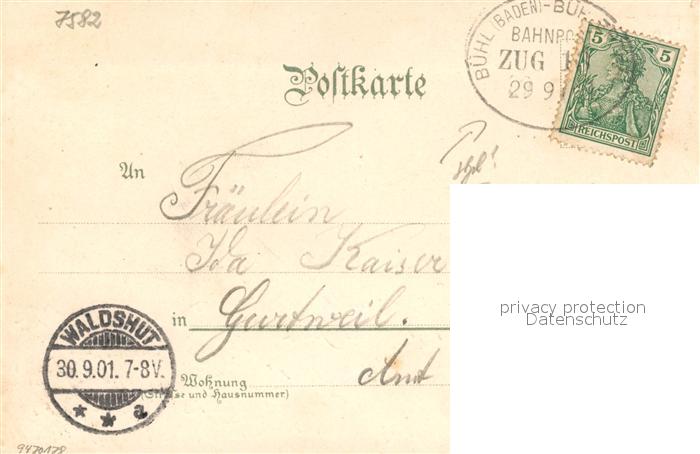 7582
BÜHL (BADEN)-BÜH
BAHNPO
ZUG 1
29 9
5 5
REICHSPOST
Postkarte
An
Fräulein
Ida Kaiser
in Gurtweil.
Amt
privacy protection
Datenschutz
WALDSHUT
30.9.01. 7-8V.
* * a
Wohnung
(Straße und Hausnummer)
9470178